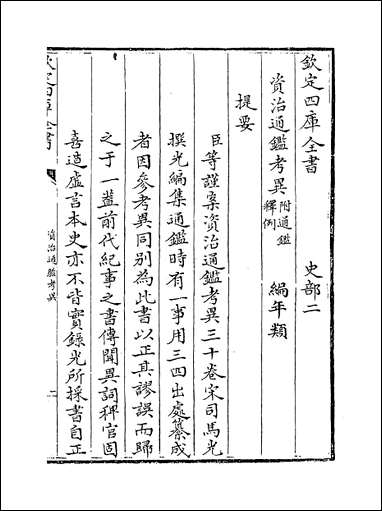 欽定四庫全書 史部二
資治通鑑考異附通鑑釋例 編年類
提要
臣等謹案資治通鑑考異三十卷宋司馬光
撰光編集通鑑時有一事用三四出處纂成
者因參考異同別為此書以正其謬誤而歸
之于一蓋前代紀事之書傳聞異詞稗官固
喜造虛言本史亦不皆實錄光所採書自正
欽定四庫全書
資治通鑑考異
一